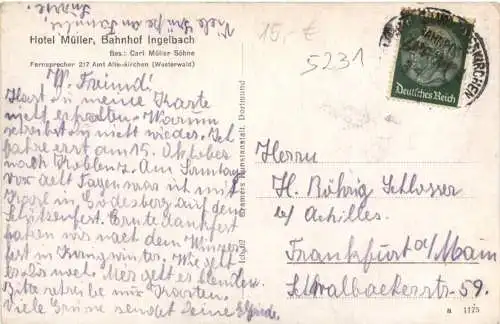 Viele Grüße an Familie
Hotel Müller, Bahnhof Ingelbach
Bes.: Carl Müller Söhne
Fernsprecher 217 Amt Altenkirchen (Westerwald)
15,- €
5231
Deutsches Reich
W. Freund!
Hast du meine Karte
nicht erhalten. Warum
schreibst du nicht wieder. Ich
fahre erst am 15. Oktober
nach Koblenz. Am Sonntag
vor acht Tagen war ich mit
Karl in Godesberg auf dem
Schützenfest. Erntedankfest
fahren wir nach dem Winzer-
fest in Königswinter. Wie geht
es dir noch. Mir geht es
Bitte schreibe mir Karten.
Viele Grüsse sendet deine Elfriede.
Kramers Kunstanstalt, Dortmund
Herrn
H. Röhrig Schlosser
b/ Achilles.
Frankfurt a/Main
Schwalbacherstr 59.
a 1175